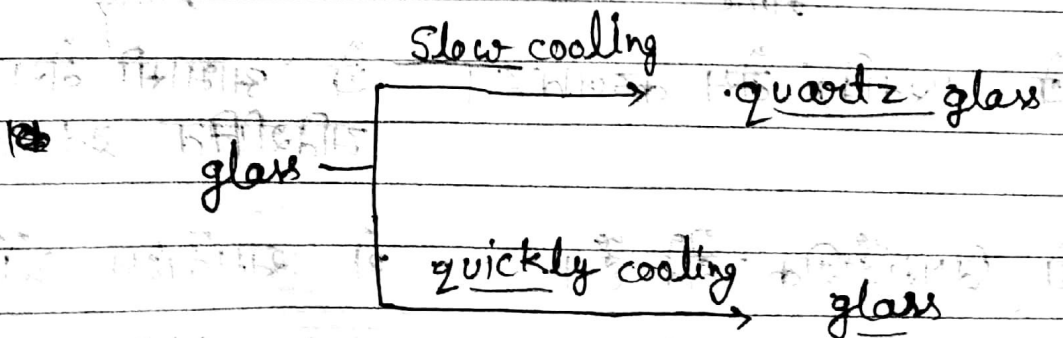 Slow cooling
quartz glass
glass
quickly cooling
glass